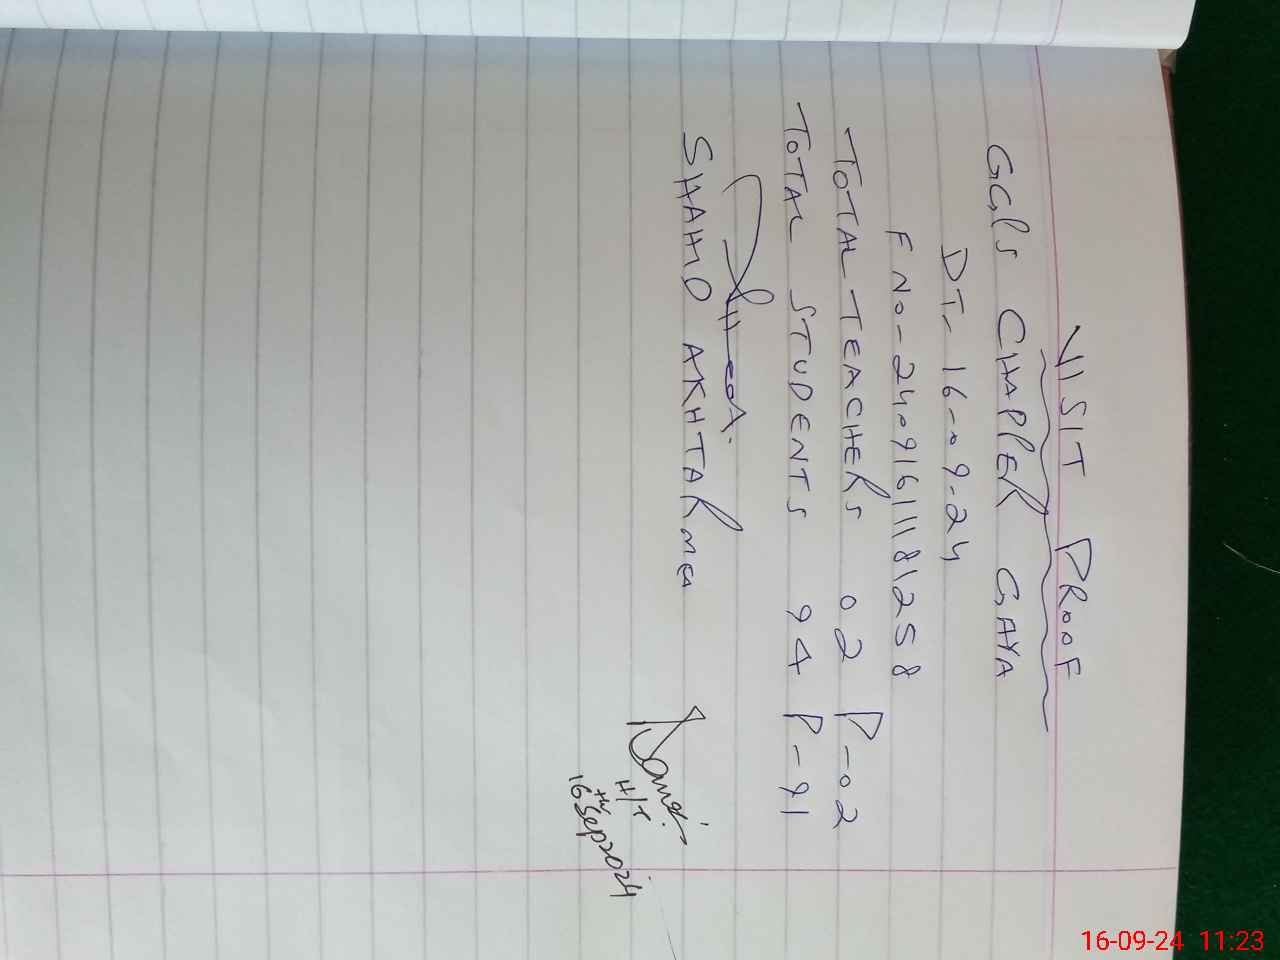 VISIT PROOF
GGPS CHAPPER GAYA
DT- 16-09-24
F NO- 2409161181258
TOTAL TEACHERS 02 P-02
TOTAL STUDENTS 94 P-91
SHAHID AKHTAR
H/T
16th Sep 2024
16-09-24 11:23